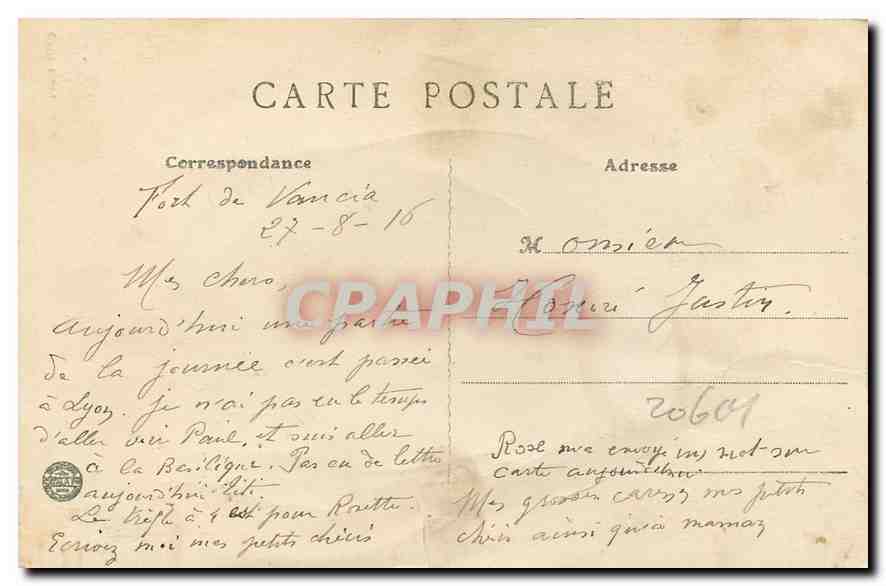 CARTE POSTALE
Correspondance
Fort de Vancia
27-8-16
Mes chers,
Aujourd'hui une partie
de la journée c'est passée
à Lyon. Je n'ai pas eu le temps
d'aller voir Paul, et suis aller
à la Basilique. Pas eu de lettre
aujourd'hui
Le trèfle à 4 est pour Rosette.
Ecrivez moi mes petits chéris
Adresse
Monsieur
Honoré Justin.
20601
Rose m'a envoyé un mot sur
carte aujourd'hui
Mes grosses caresses mes petits
chéris ainsi qu'à maman
CPAPHIL